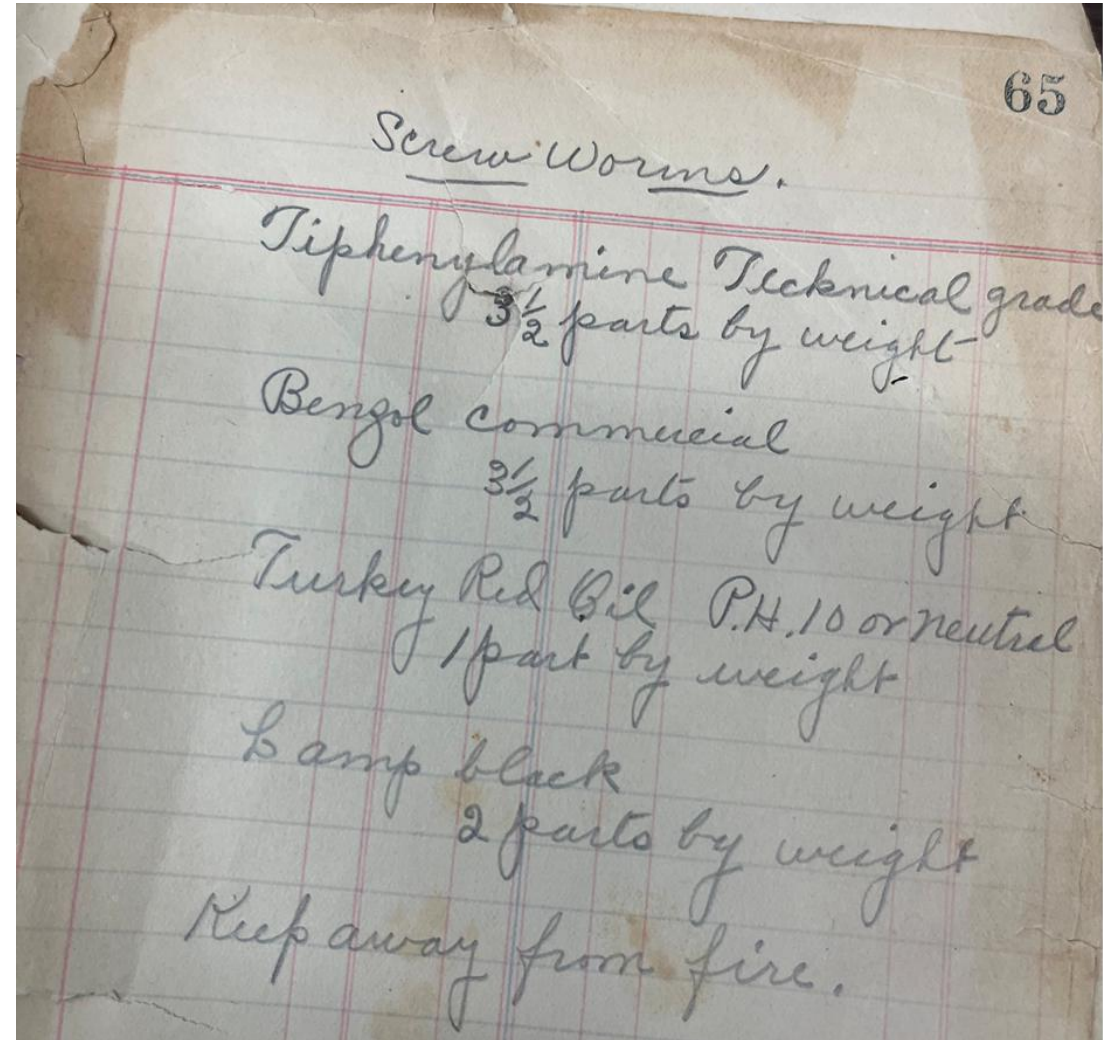 65
Screw Worms.
Tiphenylamine Technical grade
3½ parts by weight
Benzol commercial
3½ parts by weight
Turkey Red Oil P.H. 10 or neutral
1 part by weight
Lamp black
2 parts by weight
Keep away from fire.